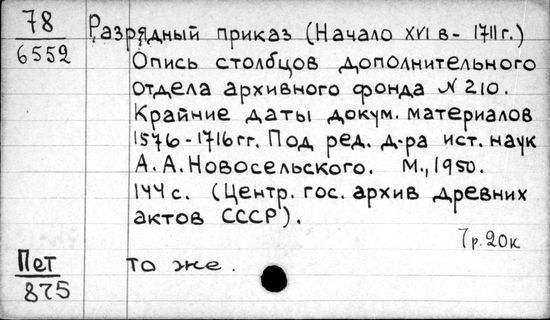 78
6552
Разрядный приказ (Начало XVI в - 1711 г.)
Опись столбцов дополнительного
отдела архивного фонда № 210.
Крайние даты докум. материалов
1576-1716 гг. Под ред. д-ра ист. наук
А. А. Новосельского. М., 1950.
144 с. (Центр. гос. архив древних
актов СССР).
7 р. 20 к
Пет
875
то же.